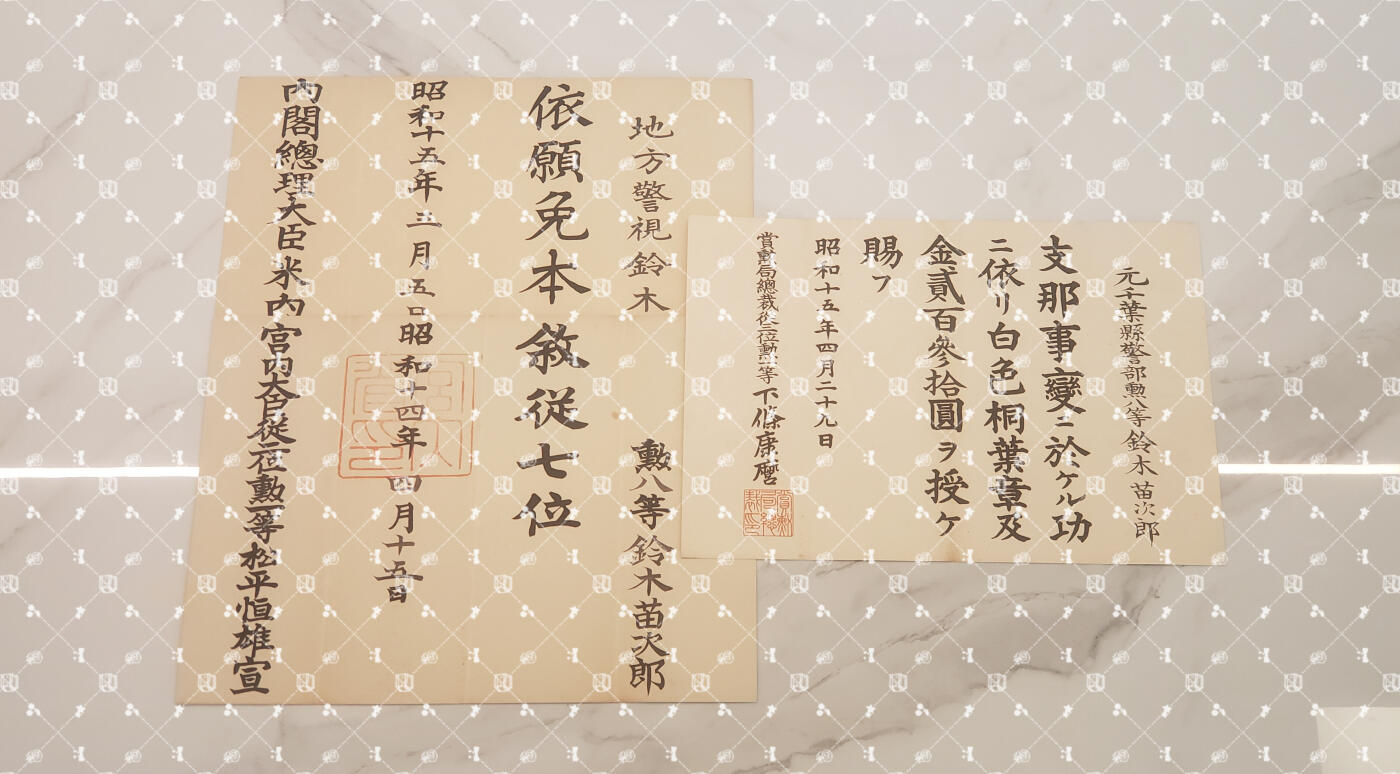 元千葉縣警部勲八等鈴木苗次郎
支那事變ニ於ケル功
ニ依リ白色桐葉章及
金貳百參拾圓ヲ授ケ
賜フ
昭和十五年四月二十九日
賞勲局總裁從三位勲二等下條康麿
地方警視鈴木
依願免本
昭和十五年三月五日
内閣總理大臣米内
勲八等鈴木苗次郎
敘従七位
昭和十四年四月十五日
宮内大臣従二位勲一等松平恒雄宣